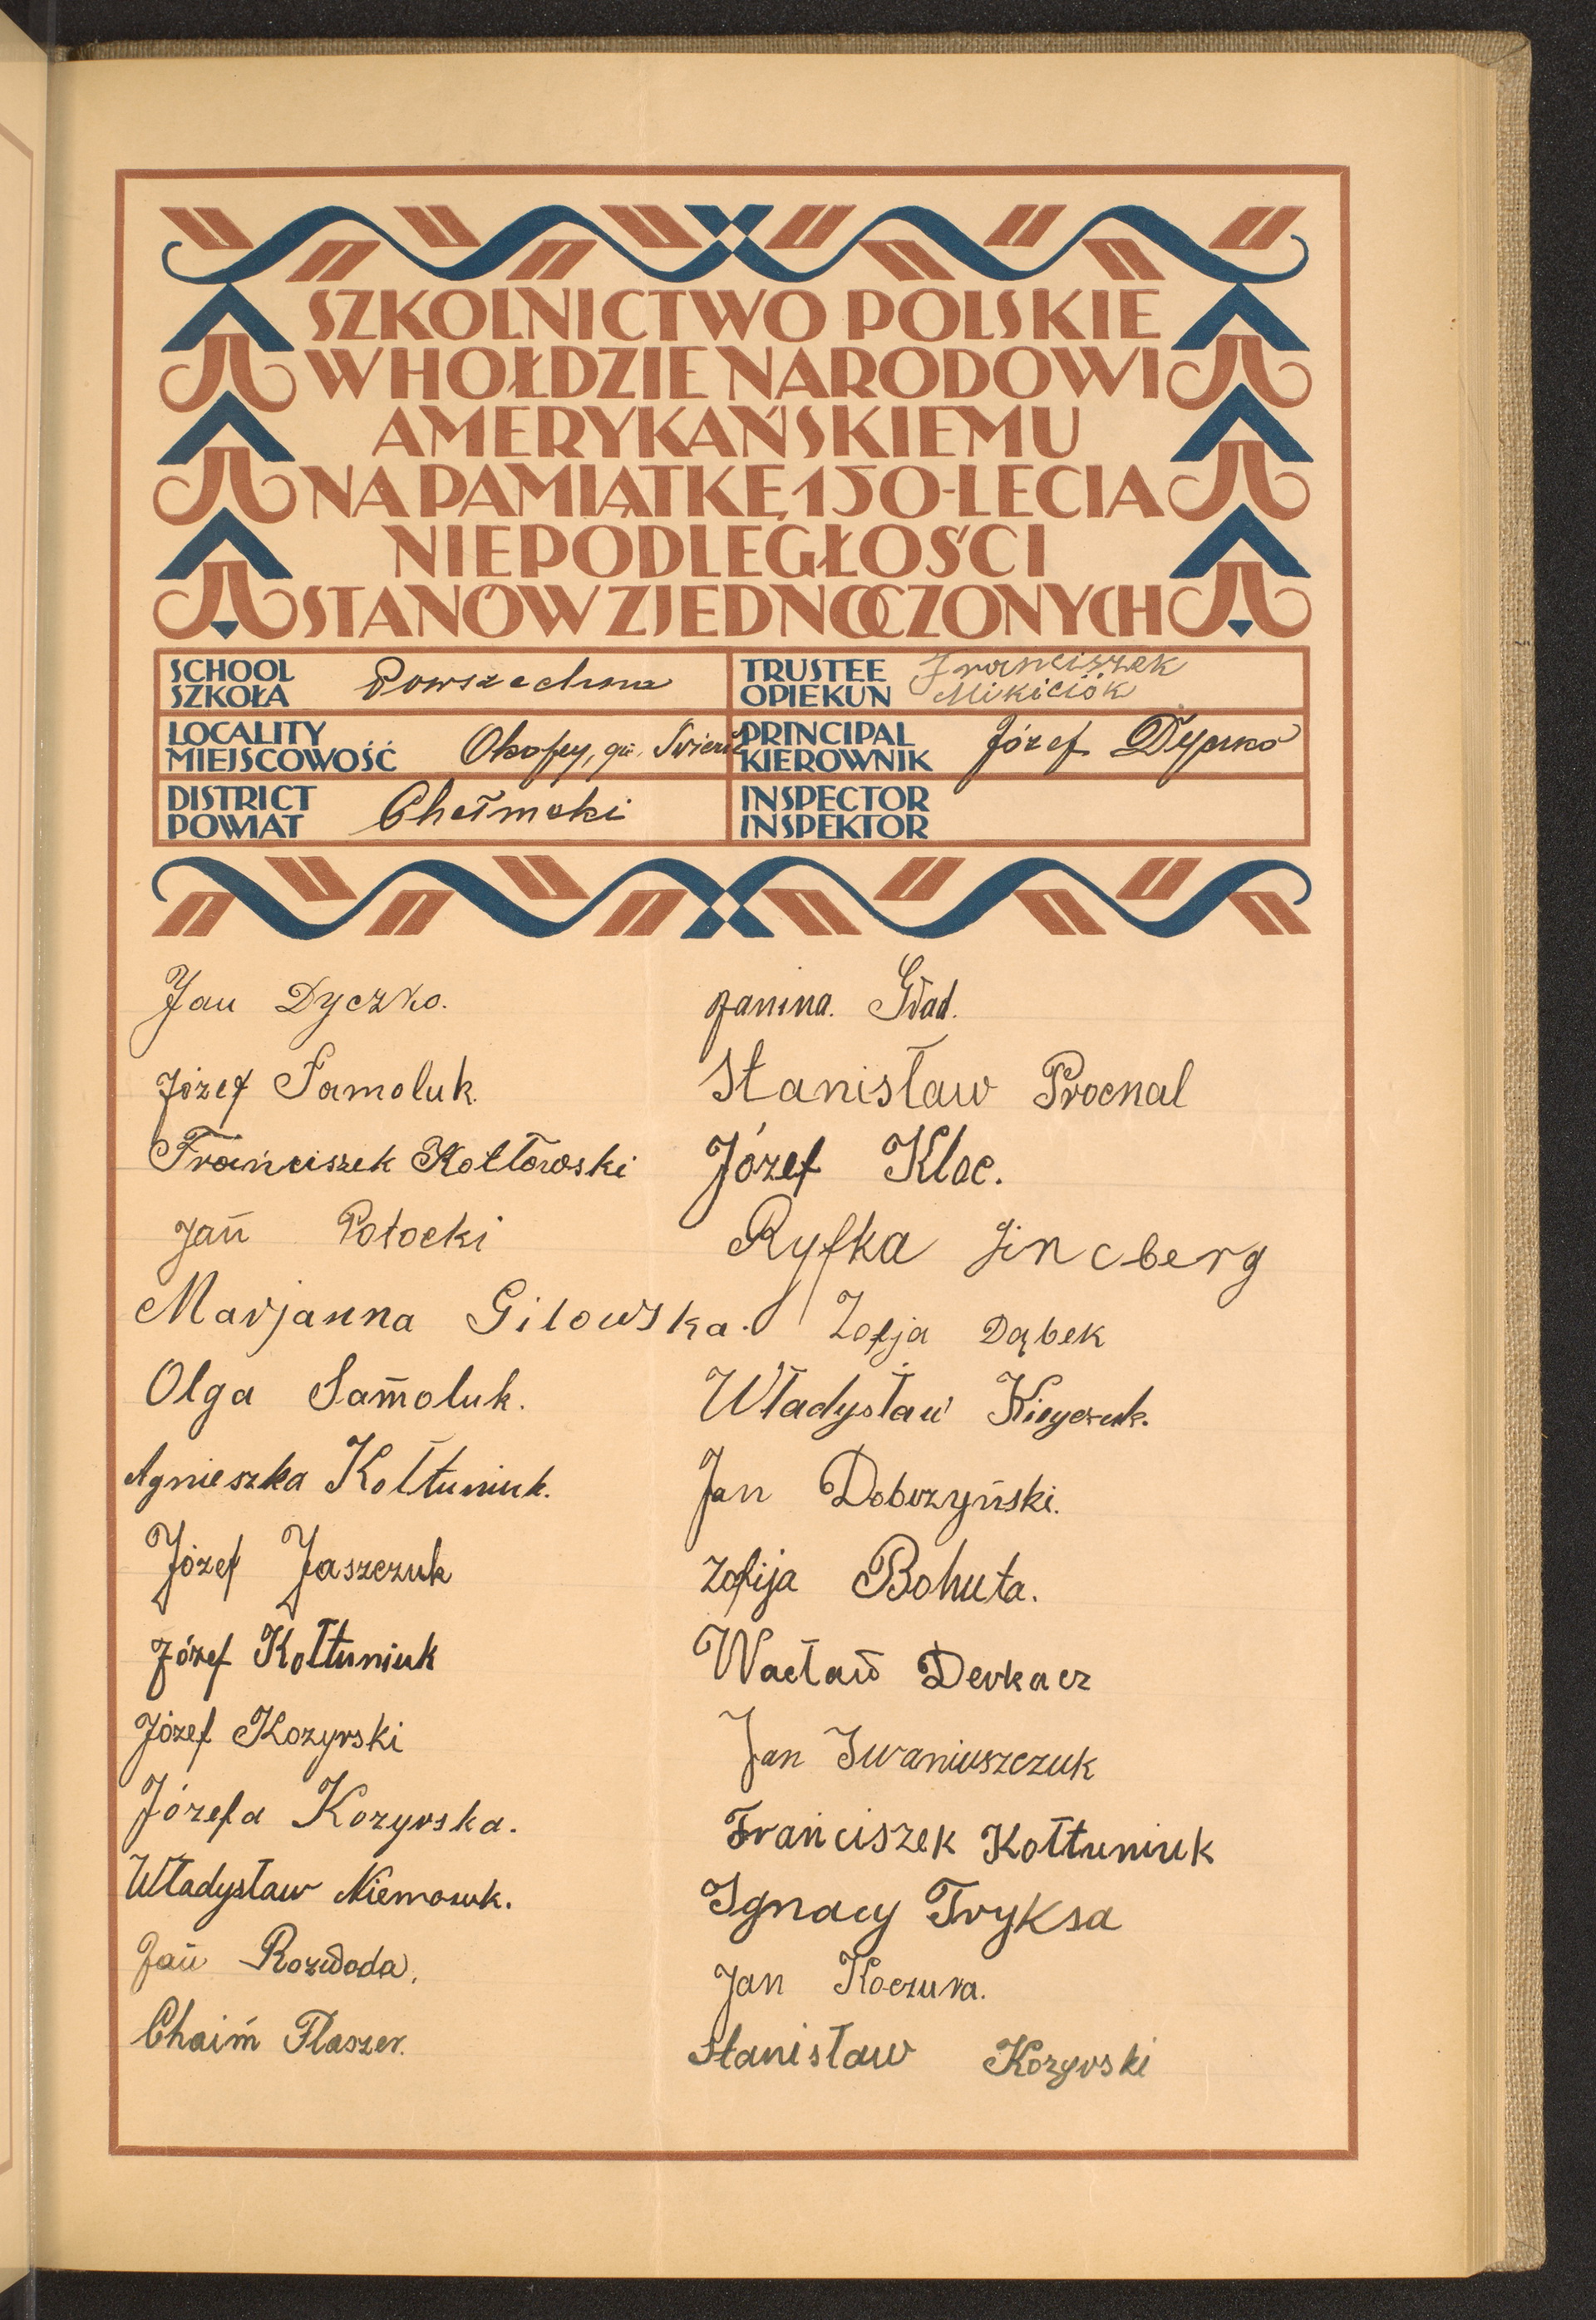 SZKOLNICTWO POLSKIE
W HOŁDZIE NARODOWI
AMERYKAŃSKIEMU
NA PAMIĄTKĘ 150-LECIA
NIEPODLEGŁOŚCI
STANÓW ZJEDNOCZONYCH
SCHOOL
SZKOŁA
Powszechna
TRUSTEE
OPIEKUN
Franciszek
Mikiciók
LOCALITY
MIEJSCOWOŚĆ
Okopy, gm.
PRINCIPAL
KIEROWNIK
Józef
DISTRICT
POWIAT
Chełmski
INSPECTOR
INSPEKTOR
Jan Dyczko.
Józef Samoluk.
Franciszek Kołtowski
Jan Potocki
Marjanna Gilowska.
Olga Samoluk.
Agnieszka Kołtuniuk.
Józef Jaszczuk
Józef Kołtuniuk
Józef Kozyrski
Józefa Kozyrska.
Władysław
Jan Rozwoda.
Chaim Flaszer.
Janina. Gład.
Stanisław Procnal
Józef Kloc.
Ryfka Gincberg
Zofja Dąbek
Władysław
Jan Dobrzyński.
Zofija Bohuta.
Wacław Derkacz
Jan Iwaniuszczuk
Franciszek Kołtuniuk
Ignacy Tryksa
Jan Koczura.
Stanisław Kozyrski